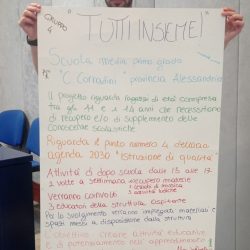 GRUPPO
4
"TUTTI INSIEME!"
Scuola media primo grado
"C. Corradini" provincia Alessandria
Il progetto riguarda ragazzi di età compresa
tra gli 11 e i 14 anni che necessitano
di recupero e/o di supplemento delle
conoscenze scolastiche
Riguarda il punto numero 4 dell'
agenda 2030 "istruzione di qualità"
Attività di dopo scuola dalle 15 alle 17
2 volte a settimana
Verranno coinvolti
educatori della struttura ospitante
Per lo svolgimento verranno impiegati materiali e
spazi messi a disposizione dalla struttura
Obiettivo: creare attività educative
e di potenziamento nell'apprendimento